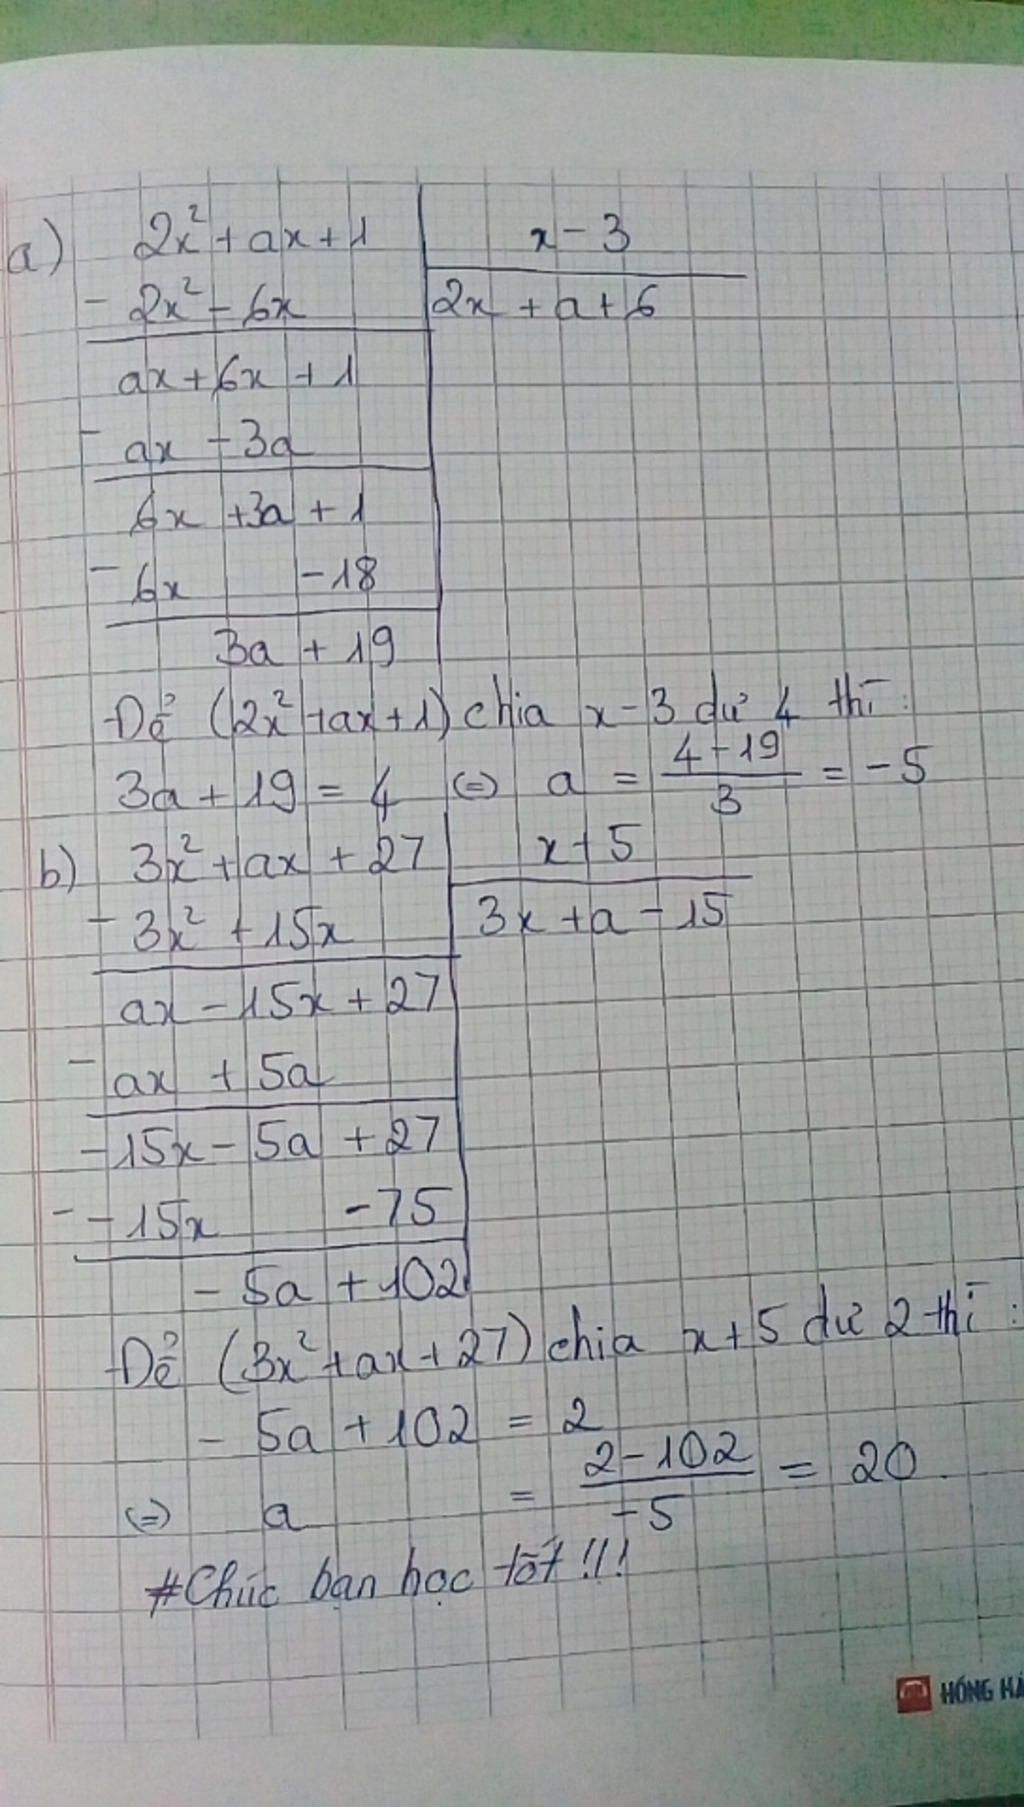 a) 2x² + ax + 1 | x - 3
- 2x² - 6x | 2x + a + 6
ax + 6x + 1
- ax - 3a
6x + 3a + 1
- 6x - 18
3a + 19
Để (2x² + ax + 1) chia x - 3 dư 4 thì :
3a + 19 = 4 (=) a = (4 - 19)/3 = - 5
b) 3x² + ax + 27 | x + 5
- 3x² + 15x | 3x + a - 15
ax - 15x + 27
- ax + 5a
- 15x - 5a + 27
- - 15x - 75
- 5a + 102
Để (3x² + ax + 27) chia x + 5 dư 2 thì :
- 5a + 102 = 2
(=) a = (2 - 102)/-5 = 20
#Chúc bạn học tốt !!!
HỒNG HÀ